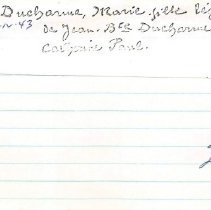 Ducharme, Marie fille lég
n-43 de Jean-Bte Ducharme
Paul.